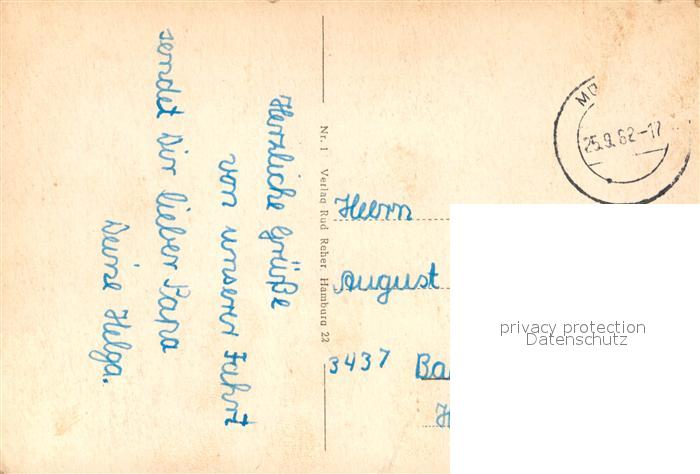 Herzliche Grüße
von unserer Fahrt
sendet Dir lieber Papa
Deine Helga.
Nr. 1 Verlag Rud Reher, Hamburg 22
25.9.62-17
Herrn
August
3437 Ba
privacy protection
Datenschutz